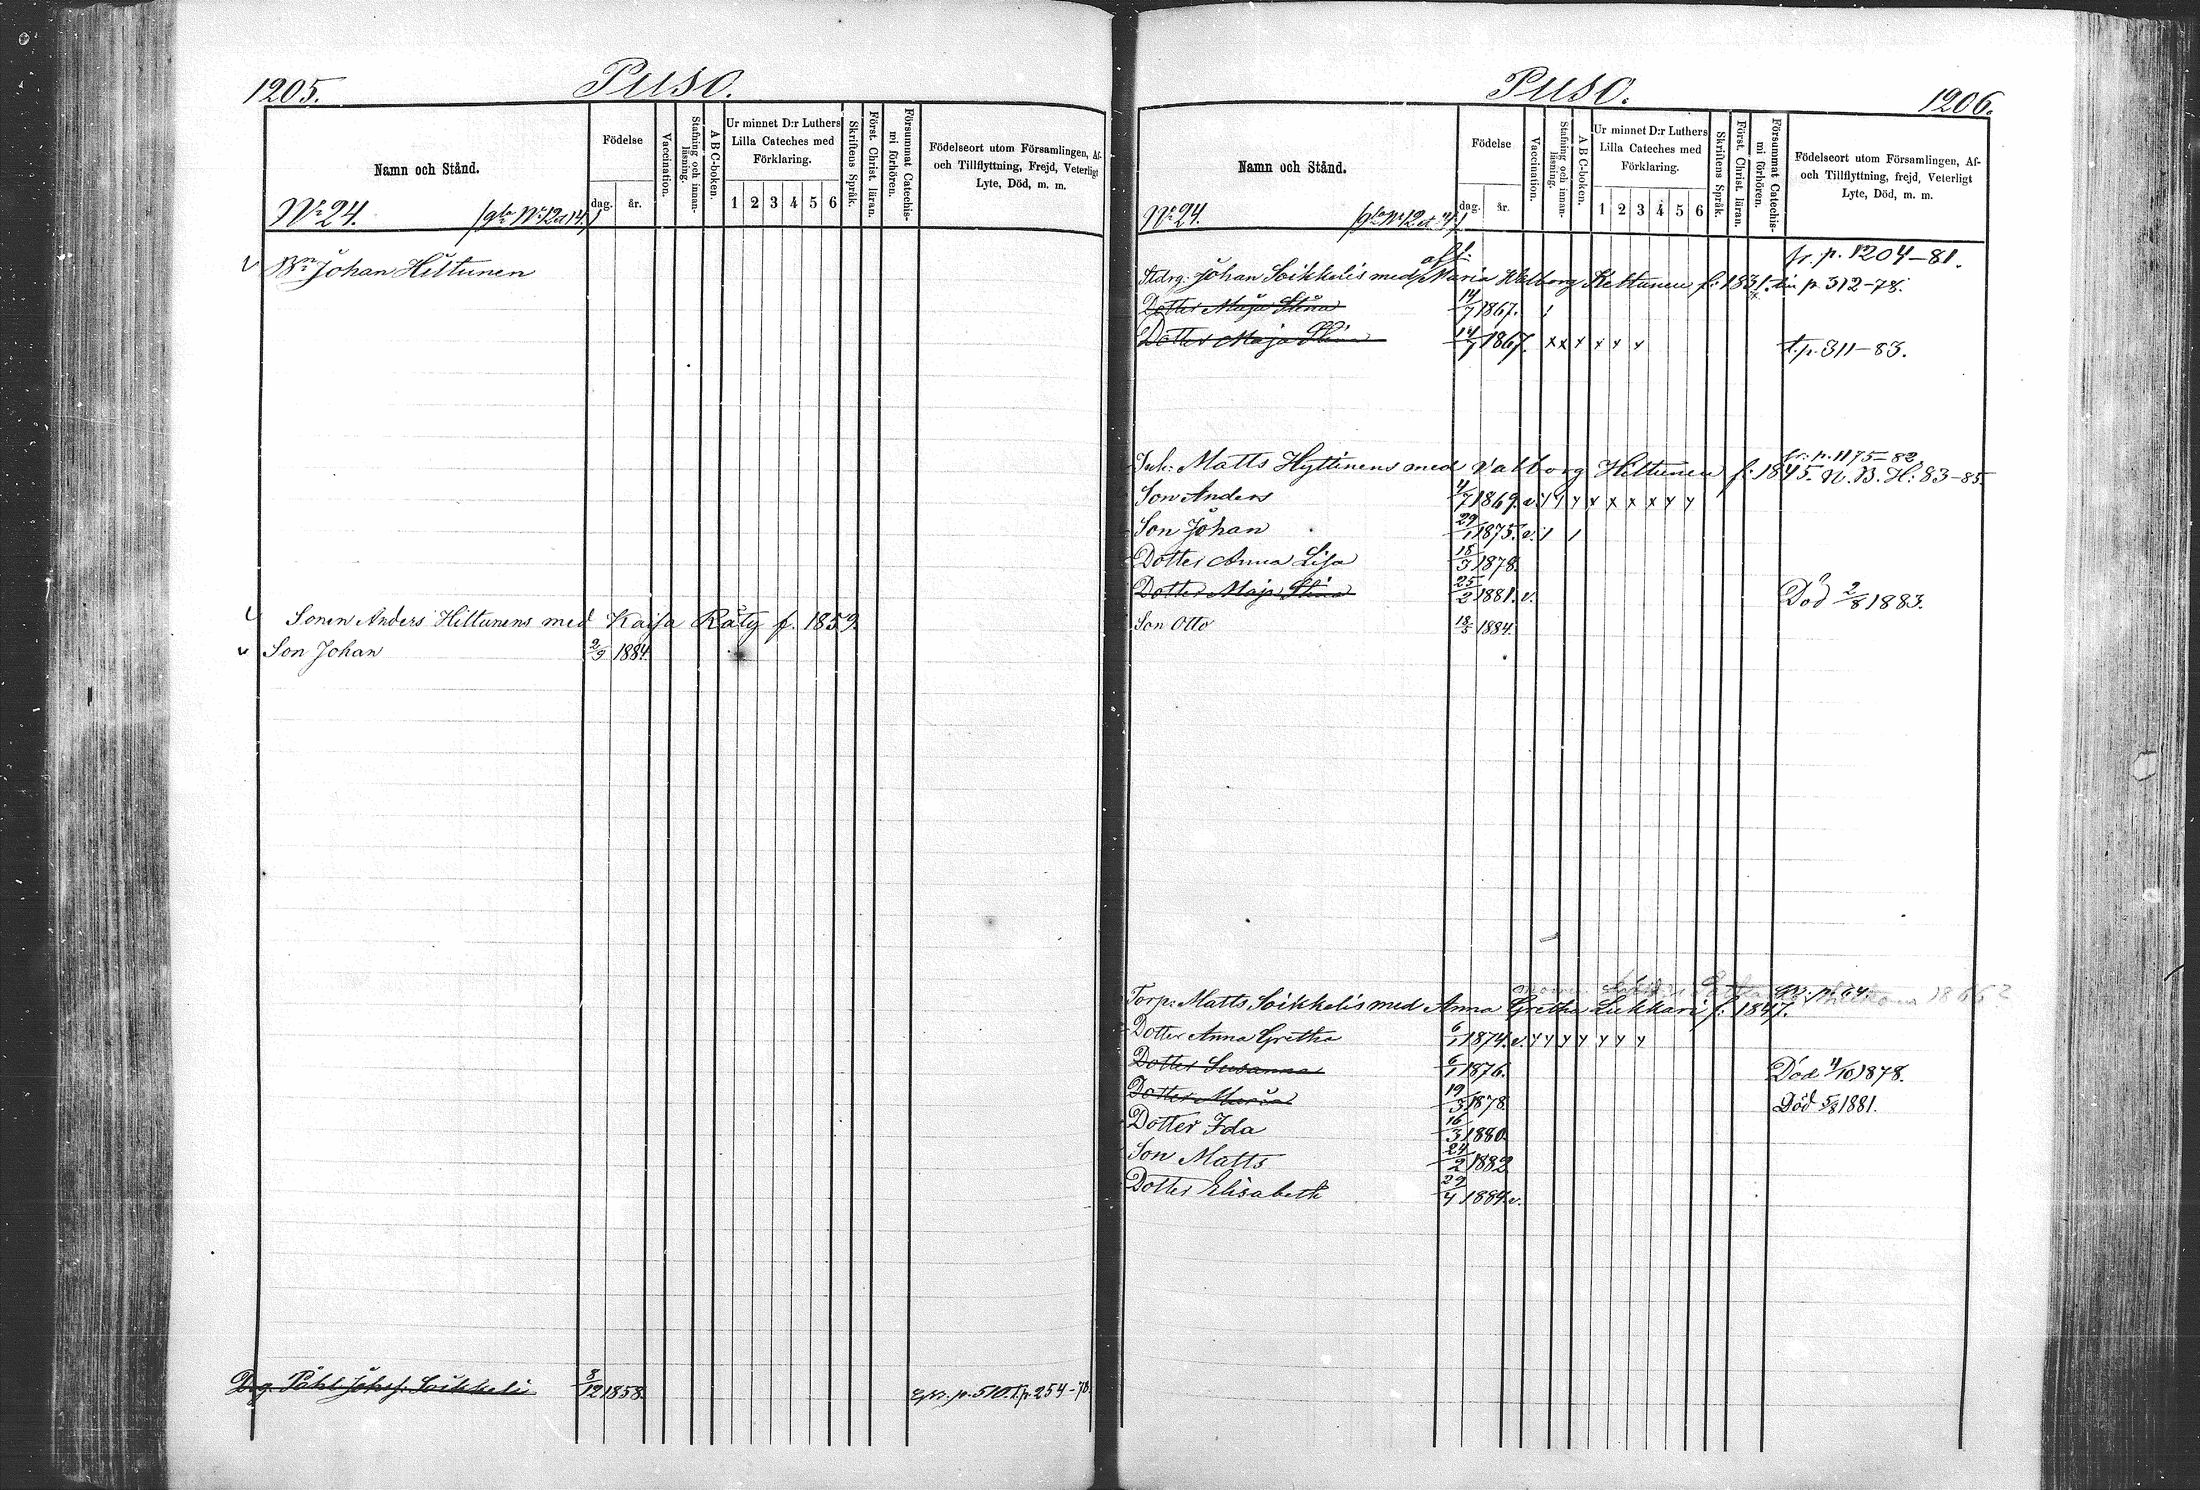 1205. Puso.
Namn och Stånd.
Födelse
dag. år.
Vaccination.
Stafning och innan-läsning.
A B C-boken.
Ur minnet D:r Luthers
Lilla Cateches med
Förklaring.
1 2 3 4 5 6
Skriftens Språk.
Först. Christ. läran.
Försummat Catechis-
mi förhören.
Födelseort utom Församlingen, Af-
och Tillflyttning, Frejd, Veterligt
Lyte, Död, m. m.
No 24. No 12 et 14.
v Bn Johan Hiltunen
v Sonen Anders Hiltunens med Kaisa Räty f. 1859.
v Son Johan 2/9 1884.
Drg. Påhl Johsf. Soikkeli 8/12 1858. p. 510. T.p. 254-78.
Puso. 1206.
Namn och Stånd.
Födelse
dag. år.
Vaccination.
Stafning och innan-läsning.
A B C-boken.
Ur minnet D:r Luthers
Lilla Cateches med
Förklaring.
1 2 3 4 5 6
Skriftens Språk.
Först. Christ. läran.
Försummat Catechis-
mi förhören.
Födelseort utom Församlingen, Af-
och Tillflyttning, frejd, Veterligt
Lyte, Död, m. m.
No 24. No 12 et 14.
fr. p. 1204-81.
Johan Soikkelis med Maria Walborg Kettunen f. 1831. p. 312-78.
Dotter Maja Stina 14/7 1867.
Dotter Maja Stina 14/7 1867. x x x x x x t.p. 311-83.
fr. p. 1175-82
Inh: Matts Hyttinens med Valborg Hiltunen f. 1845. N.B. H: 83-85
Son Anders 4/7 1869. v.
Son Johan 29/1 1875. v.
Dotter Anna Lisa 18/3 1878.
Dotter Maja Stina 25/2 1881. v. Död 2/8 1883.
Son Otto 18/5 1884.
Torp: Matts Soikkelis med Anna Gretha Lukkari f. 1847.
Dotter Anna Gretha 6/1 1874. v.
Dotter Susanna 6/1 1876. Död 4/10 1878.
Dotter Maria 19/3 1878. Död 5/8 1881.
Dotter Ida 16/3 1880.
Son Matts 24/2 1882
Dotter Elisabeth 29/4 1884. v.